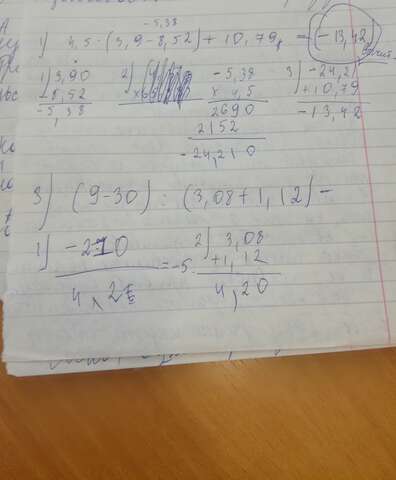 -5,38
1) 4,5 · (3,9-8,52) + 10,79 = (-13,42)
1) 3,90 2) -5,38 3) -24,21
- 8,52 × 4,5 + 10,79
-5,38 2690 -13,42
2152
-24,210
3) (9-30) : (3,08+1,12) =
1) -210 2) 3,08
= -5 +1,12
4,2 4,20